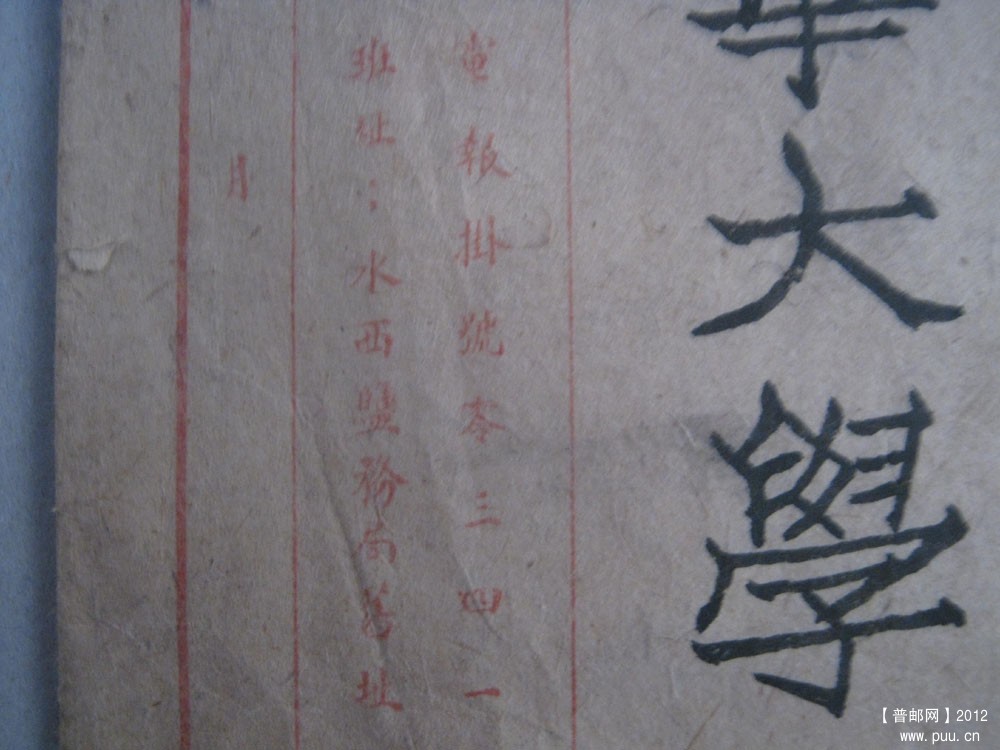 華大學
電報掛號零三四一
班址：水西鹽務局舊址
月
【普邮网】2012
www.puu.cn